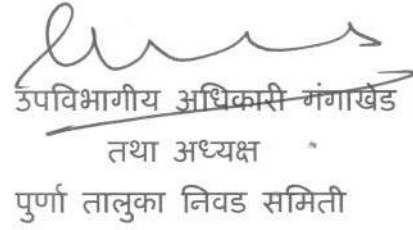 उपविभागीय अधिकारी गंगाखेड
तथा अध्यक्ष
पुर्णा तालुका निवड समिती